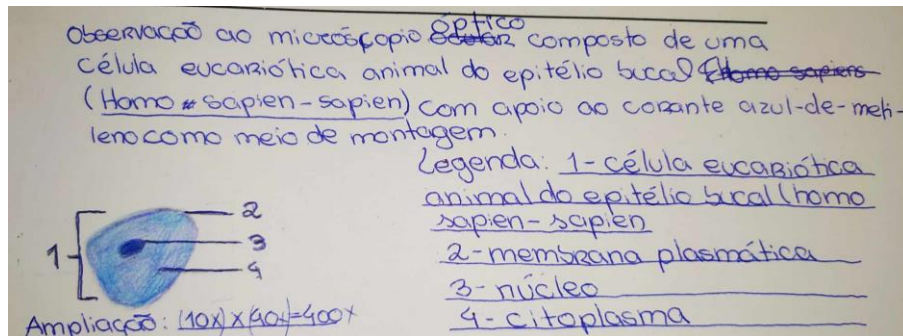 Observação ao microscópio óptico composto de uma
célula eucariótica animal do epitélio bucal
(Homo sapien-sapien) com apoio ao corante azul-de-meti-
leno como meio de montagem.
Legenda: 1- célula eucariótica
animal do epitélio bucal (homo
sapien-sapien
2- membrana plasmática
3- núcleo
4- citoplasma
1
2
3
4
Ampliação: (10x)x(40x)=400x